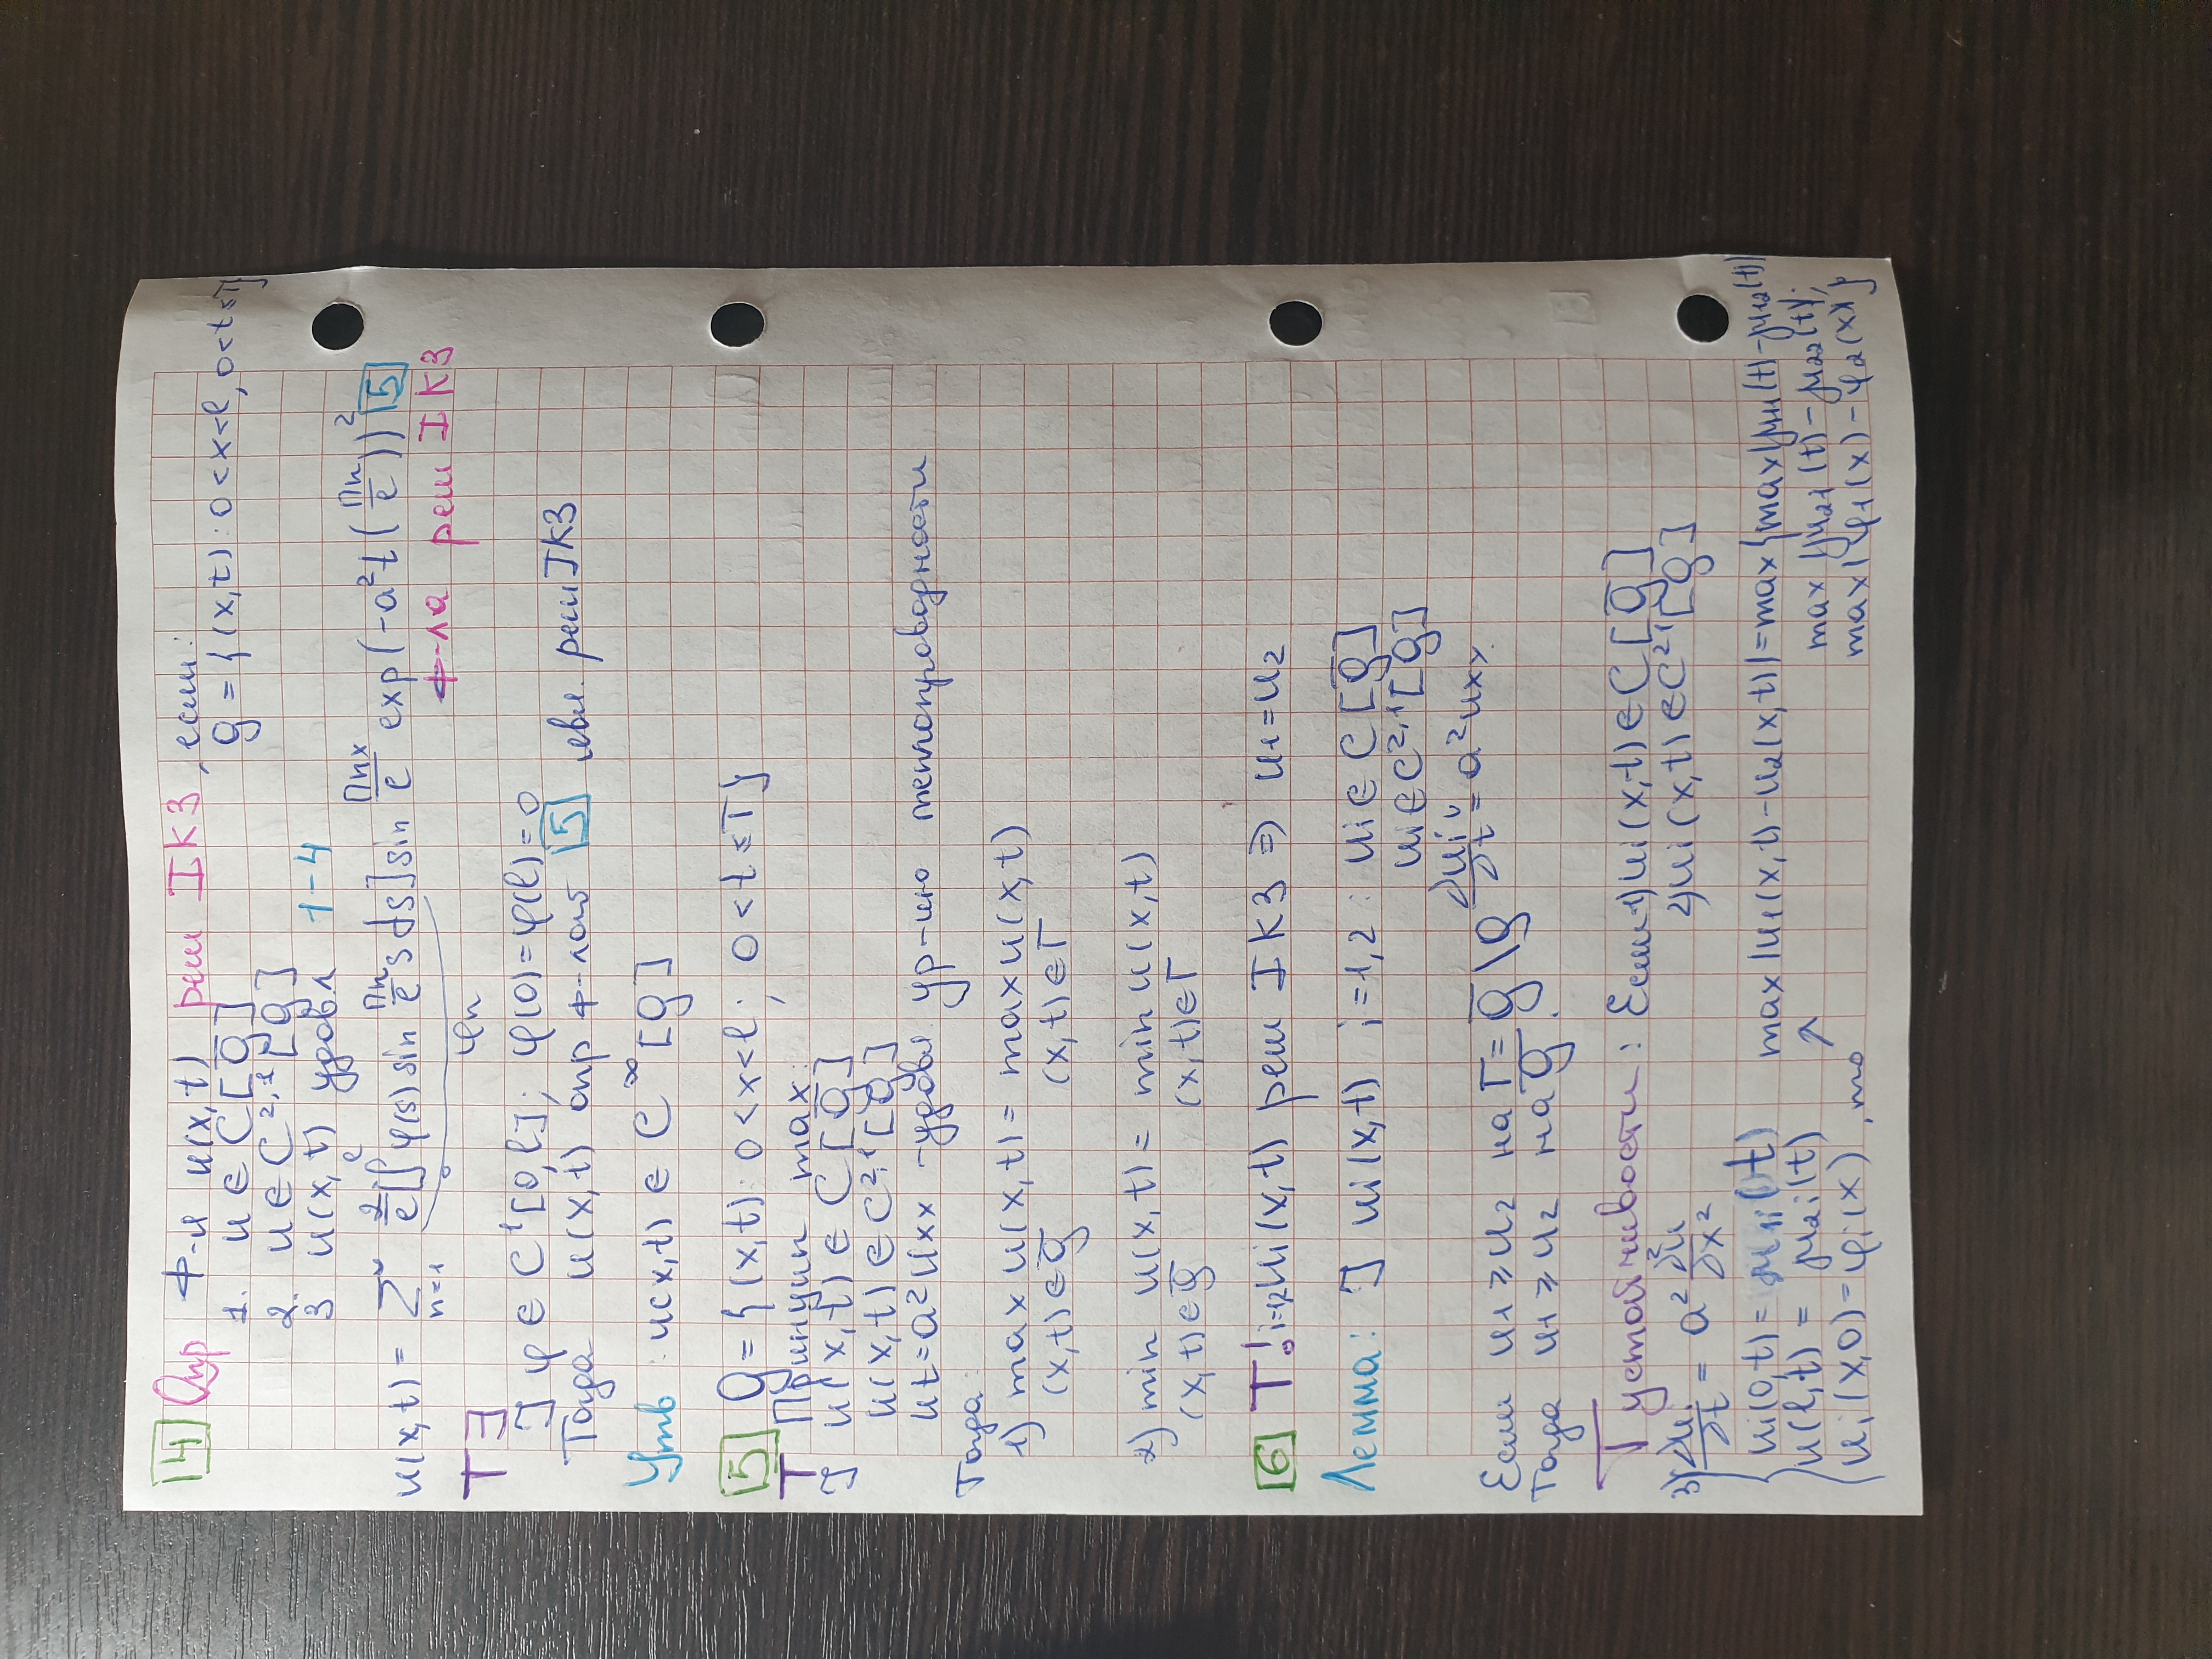 [4] Опр ф-и u(x,t) реш I K З, если:
1. u ∈ C[g̅] g = {(x,t): 0<x<l, 0<t≤T}
2. u ∈ C²,¹[g]
3 u(x,t) удовл 1-4
u(x,t) = ∑ₙ₌₁^∞ 2/l [∫₀^l φ(s) sin πn/l s ds] sin πnx/l exp(-a²t(πn/l))² [5]
φn ф-ла реш I K З
T ∃
] φ ∈ C¹[0,l]; φ(0)=φ(l)=0
Тогда u(x,t) опр ф-лой [5] явл. реш I K З
Утв: u(x,t) ∈ C^∞[g]
[5] g = {(x,t): 0<x<l; 0<t≤T}
T Принцип max:
] u(x,t) ∈ C[g̅]
u(x,t) ∈ C²,¹[g]
ut=a²uxx -удовл ур-ию теплопроводности
Тогда:
1) max u(x,t) = max u(x,t)
(x,t)∈g̅ (x,t)∈Г
2) min u(x,t) = min u(x,t)
(x,t)∈g̅ (x,t)∈Г
[6] T! i=1,2 ui(x,t) реш I K З ⇒ u₁=u₂
Лемма: ] ui(x,t) i=1,2: ui ∈ C[g̅]
ui∈C²,¹[g]
∂ui/∂t = a²uxx
Если u₁ ≥ u₂ на Г = g̅ \ g
Тогда u₁ ≥ u₂ на g̅.
T устойчивости: Если 1) ui(x,t) ∈ C[g̅]
2) ui(x,t) ∈ C²,¹[g]
3) { ∂ui/∂t = a² ∂²u/∂x²
ui(0,t) = μ1i(t) max|u₁(x,t)-u₂(x,t)|=max{max|μ11(t)-μ12(t)|
u(l,t) = μ2i(t) ↗ max|μ21(t)-μ22(t)|;
ui(x,0)=φi(x), то max|φ₁(x)-φ₂(x)|}